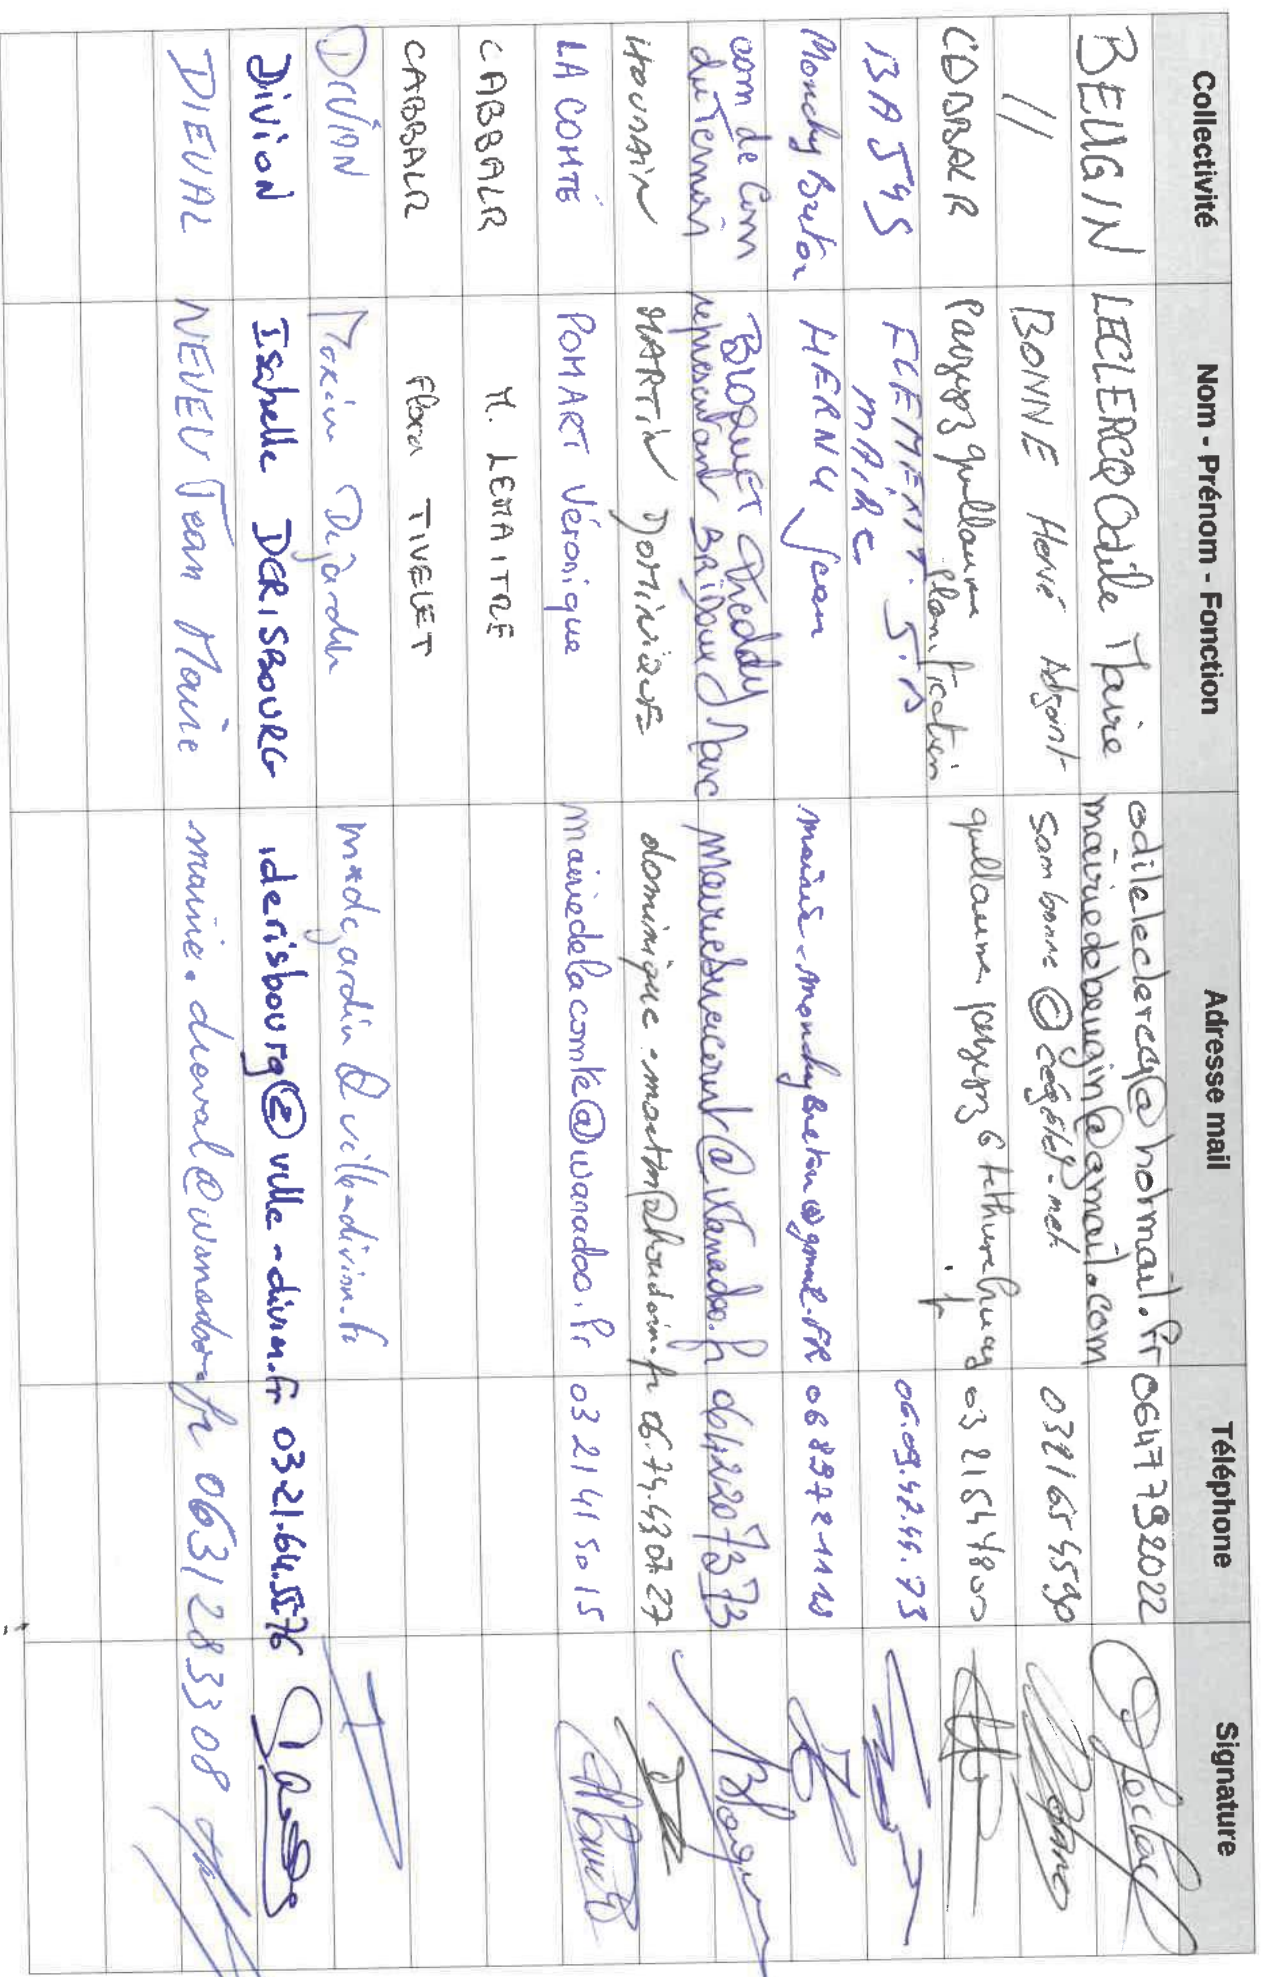 Collectivité Nom - Prénom - Fonction Adresse mail Téléphone Signature
BEUGIN LECLERCQ Odile Maire odileleclercq@hotmail.fr 0647792022
mairiedebeugin@gmail.com
// BONNE Hervé Adjoint sambonne@cegetel.net 0321655590
CABBALR guillaume Planification guillaume. 0321544800
BAJUS CLEMENT J.M 06.09.42.44.73
MAIRE
Monchy Breton HERNU Jean mairie-monchyBreton@gmail.FR 0689721110
com de Com BLOQUET Freddy mairiebuecourt@wanadoo.fr 0642207373
du Ternois représentant BRIDOUX Marc
HOUDAIN MARTIN DOMINIQUE dominique.martin@houdain.fr 06.74.430727
LA COMTÉ POMART Véronique mairiedelacomte@wanadoo.fr 0321415015
CABBALR M. LEMAITRE
CABBALR Flora TIVELET
DIVION Maxim Dejardin mxdejardin@ville-divion.fr
Division Isabelle DERISBOURG iderisbourg@ville-divion.fr 03.21.64.5576
DIEVAL NEVEU Jean Marie mairie.dieval@wanadoo.fr 0631283308